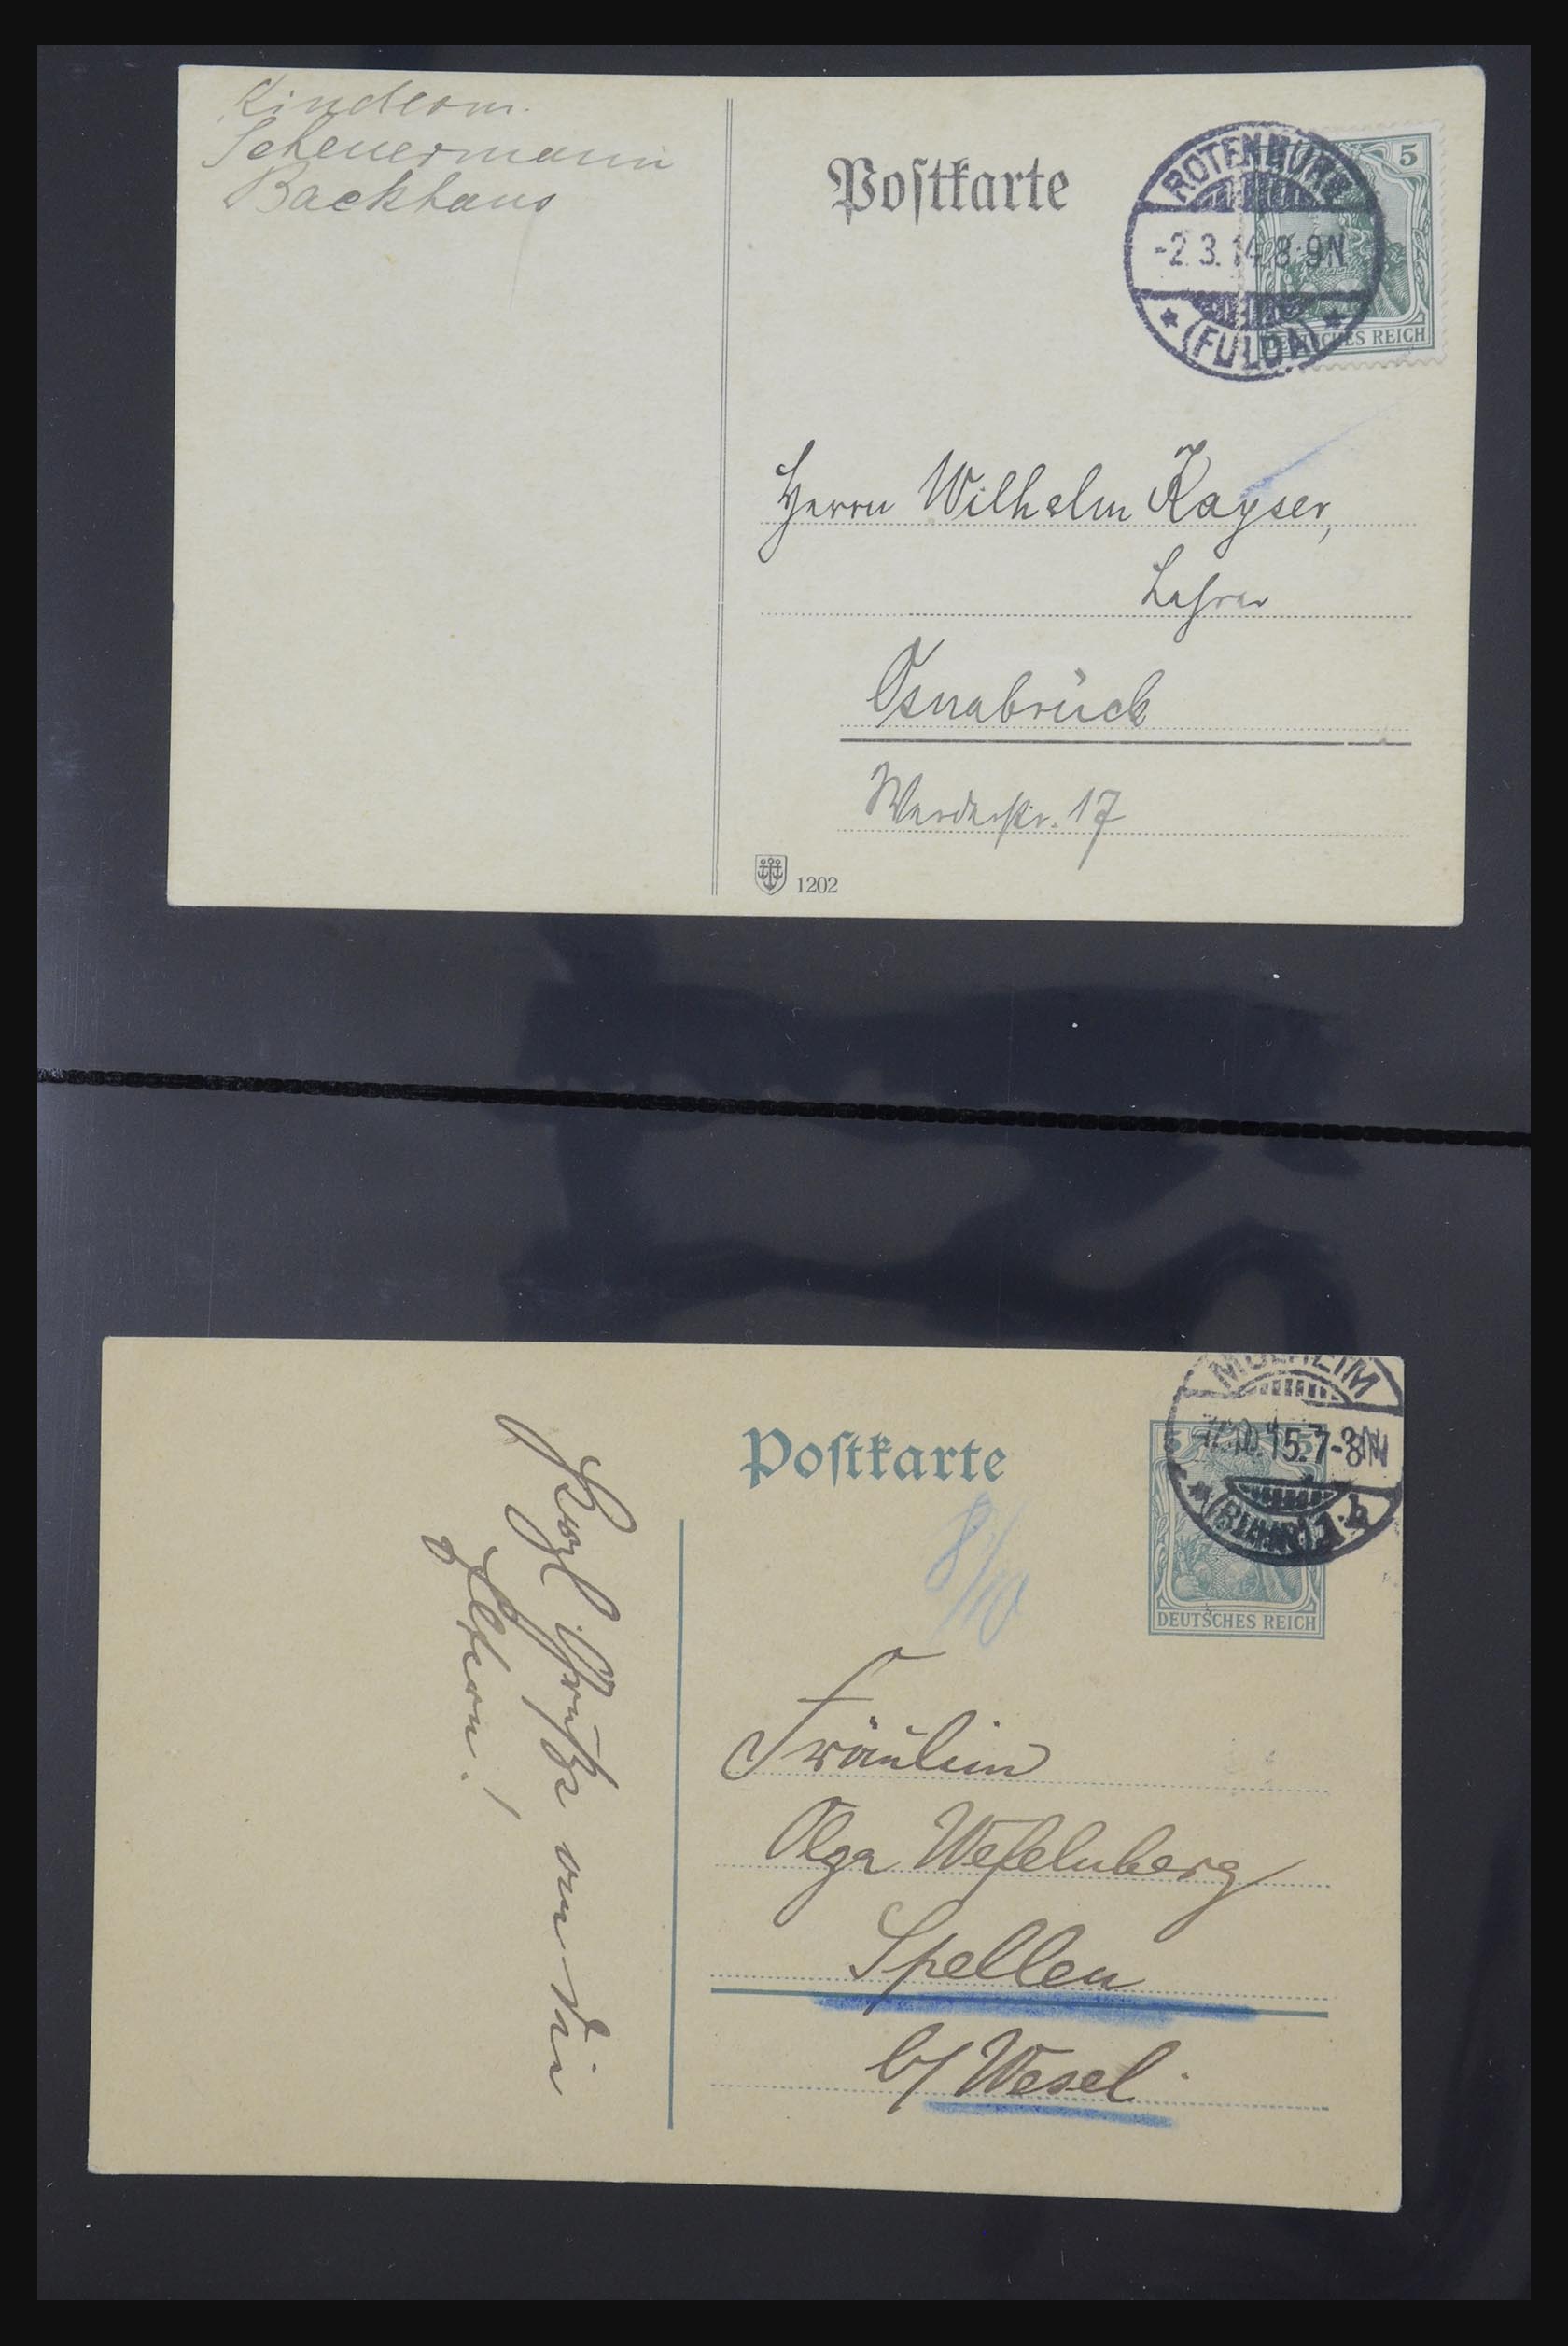 Kinderm.
Scheuermann
Backhaus
Postkarte
5
ROTENBURG
-2.3.14.8-9N
(FULDA)
DEUTSCHES REICH
Herrn Wilhelm Kayser,
Lehrer
Osnabrück
Werderstr. 17
1202
Postkarte
MÜLHEIM
15.7-8N
(RUHR) 1
5
DEUTSCHES REICH
8/10
Fräulein
Olga Wefelnberg
Spellen
b/ Wesel
Grüße von
Eltern!